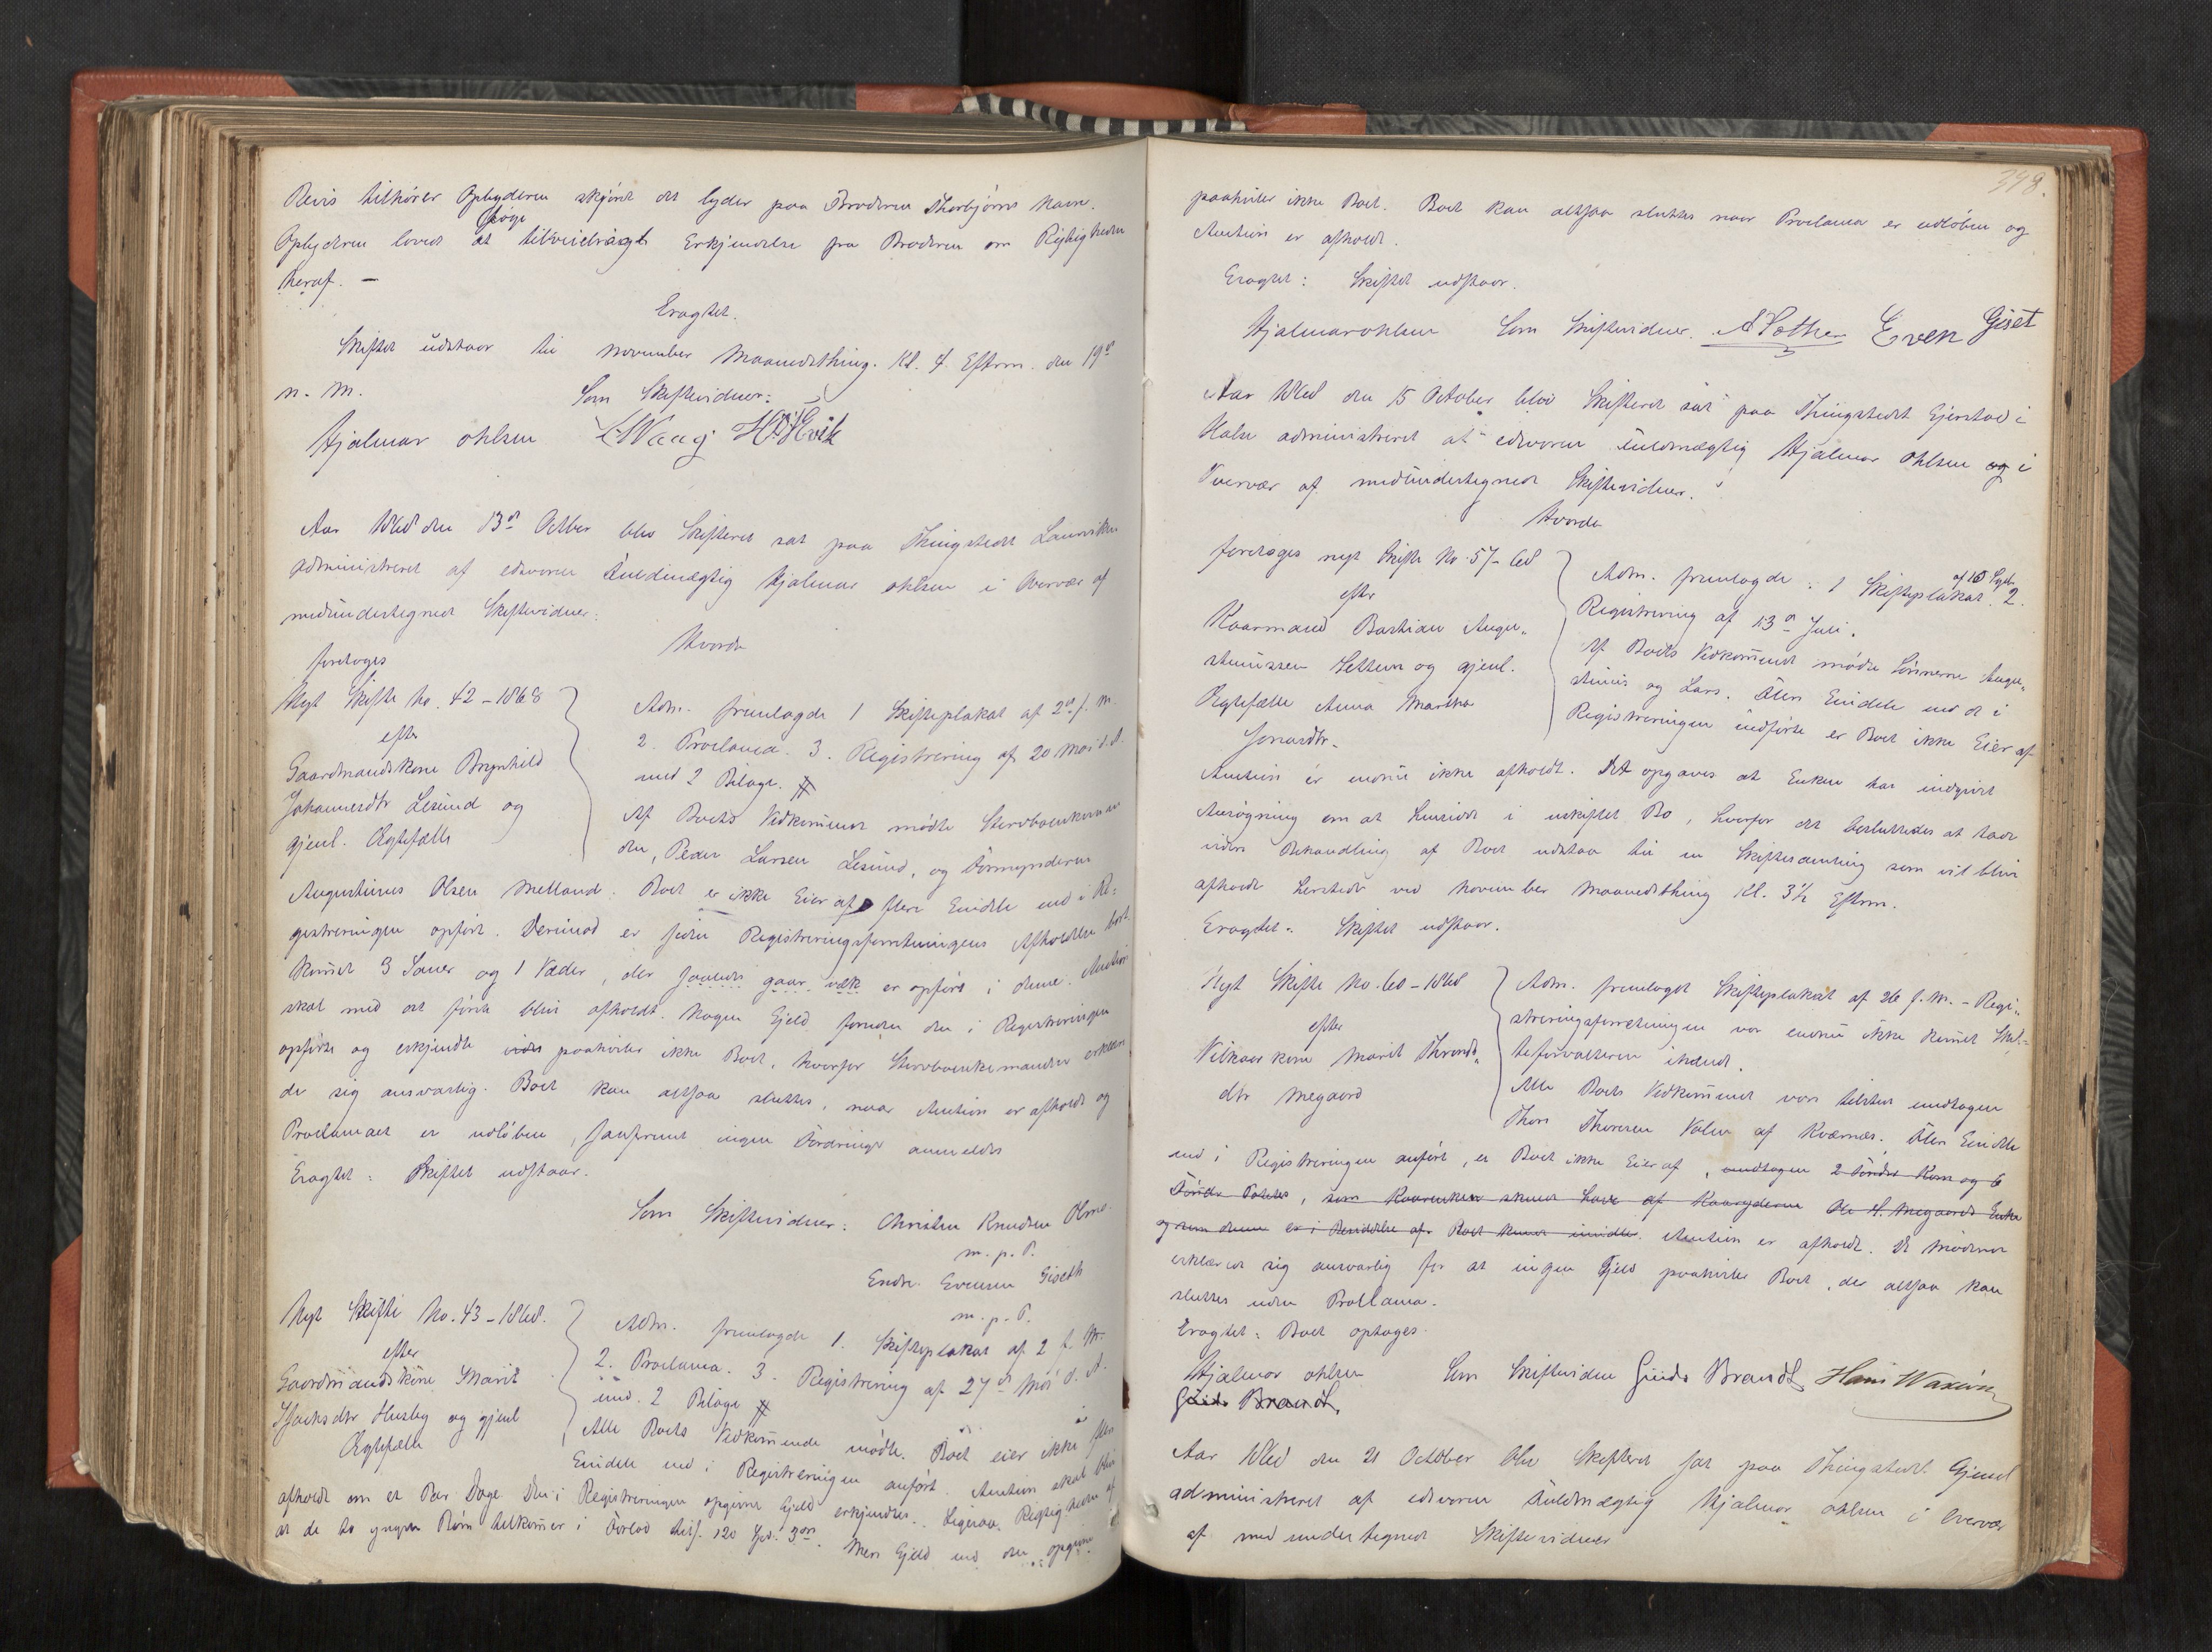 Bevis tilhører Opbyderen skjönt det lyder paa Broderen Thorbjörns Navn.
Opbyderen lovede at söge tilveiebragt Erkjendelse fra Broderen om Rigtigheden
heraf. —
Eragtet.
Skiftet udstaar til November Maanedsthing. Kl. 4 Efterm. den 19de
n. M.
Som Skiftevidner:
Hjalmar Ohlsen
Aar 1868 den 13de Octber blev Skifteret sat paa Thingstedet Laurviken
administreret af edsvoren Fuldmægtig Hjalmar Ohlsen i Overvær af
medundertegnede Skiftevidner:
Hvorda
foretoges
Nyt Skifte No. 42 - 1868
efter
Gaardmandskone Brynhild
Johannesdtr Lesund og
gjenl. Ægtefælle
Adm. fremlagde 1 Skifteplakat af 2de f. M.
2. Proclama. 3. Registrering af 20 Mai d. A.
med 2 Bilage. #
Af Boets Vedkommende mödte Stervboenkeman
den, Peder Larsen Lesund, og Formynderen
Augustinus Olsen Melland. Boet er ikke Eier af flere Eiendele end i Re-
gistreringen opfört. Derimod er siden Registreringsforretningens Afholdelse bort
kommet 3 Sauer og 1 Væder, der saaledes gaar væk er opfört i denne. Auction
skal med det förste blive afholdt. Nogen Gjeld foruden den i Registreringen
opförte og erkjendte paahviler ikke Boet, hvorfor Stervboenkemanden erklære
de sig ansvarlig. Boet kan altsaa sluttes, naar Auction er afholdt og
Proclamaet er udlöben, saafremt ingen Fordringer anmeldes
Eragtet: Skiftet udstaar.
Som Skiftevidner: Christen Knudsen Olme
m. p. P.
Endre Evensen Giseth
m. p. P.
Nyt Skifte No. 43 - 1868.
efter
Gaardmandskone Marit
Isachsdtr Husby og gjenl
Ægtefælle
Adm. fremlagde 1. Skifteplakat af 2 f. M.
2. Proclama. 3. Registrering af 27de Mai d. A.
med. 2 Bilage #
Alle Boets Vedkommende mödte. Boet eier ikke flere
Eiendele end i Registreringen anfört. Auction skal blive
afholdt om et Par Dage. Den i Registreringen opgivne Gjeld erkjendtes. Ligesaa Rigtigheden af
at de to yngste Börn tilkommer i Forlod tils. 120 Spd. Mere Gjeld end den opgivne
348.
paahviler ikke Boet. Boet kan altsaa sluttes naar Proclama er udlöben og
Auction er afholdt.
Eragtet: Skiftet udstaar.
Hjalmar Ohlsen Som Skiftevidner. Even Giset
Aar 1868 den 15 October blev Skifteret sat paa Thingstedet Gjerstad i
Halse administreret af edsvoren Fuldmægtig Hjalmar Ohlsen og i
Overvær af medundertegnede Skiftevidner.
Hvorda
foretoges nyt Skifte No. 57 - 68
efter
Kaarmand Bastian Augu-
stinussen Settem og gjenl.
Ægtefælle Anna Martha
Jonasdtr.
Adm. fremlagde: 1 Skifteplakat af 15 Sept. 2.
Registrering af 13de Juli.
Af Boets Vedkommende mödte Sönnerne Augu-
stinus og Lars. Flere Eiendele end de i
Registreringen indförte er Boet ikke Eier af
Auction er endnu ikke afholdt. Det opgaves at Enken har indgivet
Ansögning om at hensidde i uskiftet Bo, hvorfor det besluttedes at lade
videre Behandling af Boet udstaa til en Skiftesamling som vil blive
afholdt hersteds ved November Maanedsthing Kl. 3½ Efterm.
Eragtet: Skiftet udstaar.
Nyt Skifte No. 60 - 1868
efter
Vilkaarskone Marit Thronds-
dtr Megaard
Adm. fremlagde Skifteplakat af 26 f. M. - Regi-
streringsforretningen var endnu ikke kommet Skif-
teforvalteren ihænde.
Alle Boets Vedkommende vare tilstede undtagen
Thore Thoresen Valen af Kværnæs. Flere Eiendele
end i Registreringen anfört, er Boet ikke Eier af, undtagen 2 Tönder Korn og 6
Tönder Poteter, som Kaarenken skulde have af Kaaryderne Ole H. Megaards Enke
og som denne er i Besiddelse af. Boet imidler. Auction er afholdt. De mödende
erklærede sig ansvarlig for at ingen Gjeld paahviler Boet, der altsaa kan
sluttes uden Proclama.
Eragtet: Boet optages.
Hjalmar Ohlsen Som Skiftevidner Guido Brandt Hans Waxvik
Guido Brandt,
Aar 1868 den 21 October blev Skifteret sat paa Thingstedet Gjemel
administreret af edsvoren Fuldmægtig Hjalmar Ohlsen i Overvær
af medundertegnede Skiftevidner